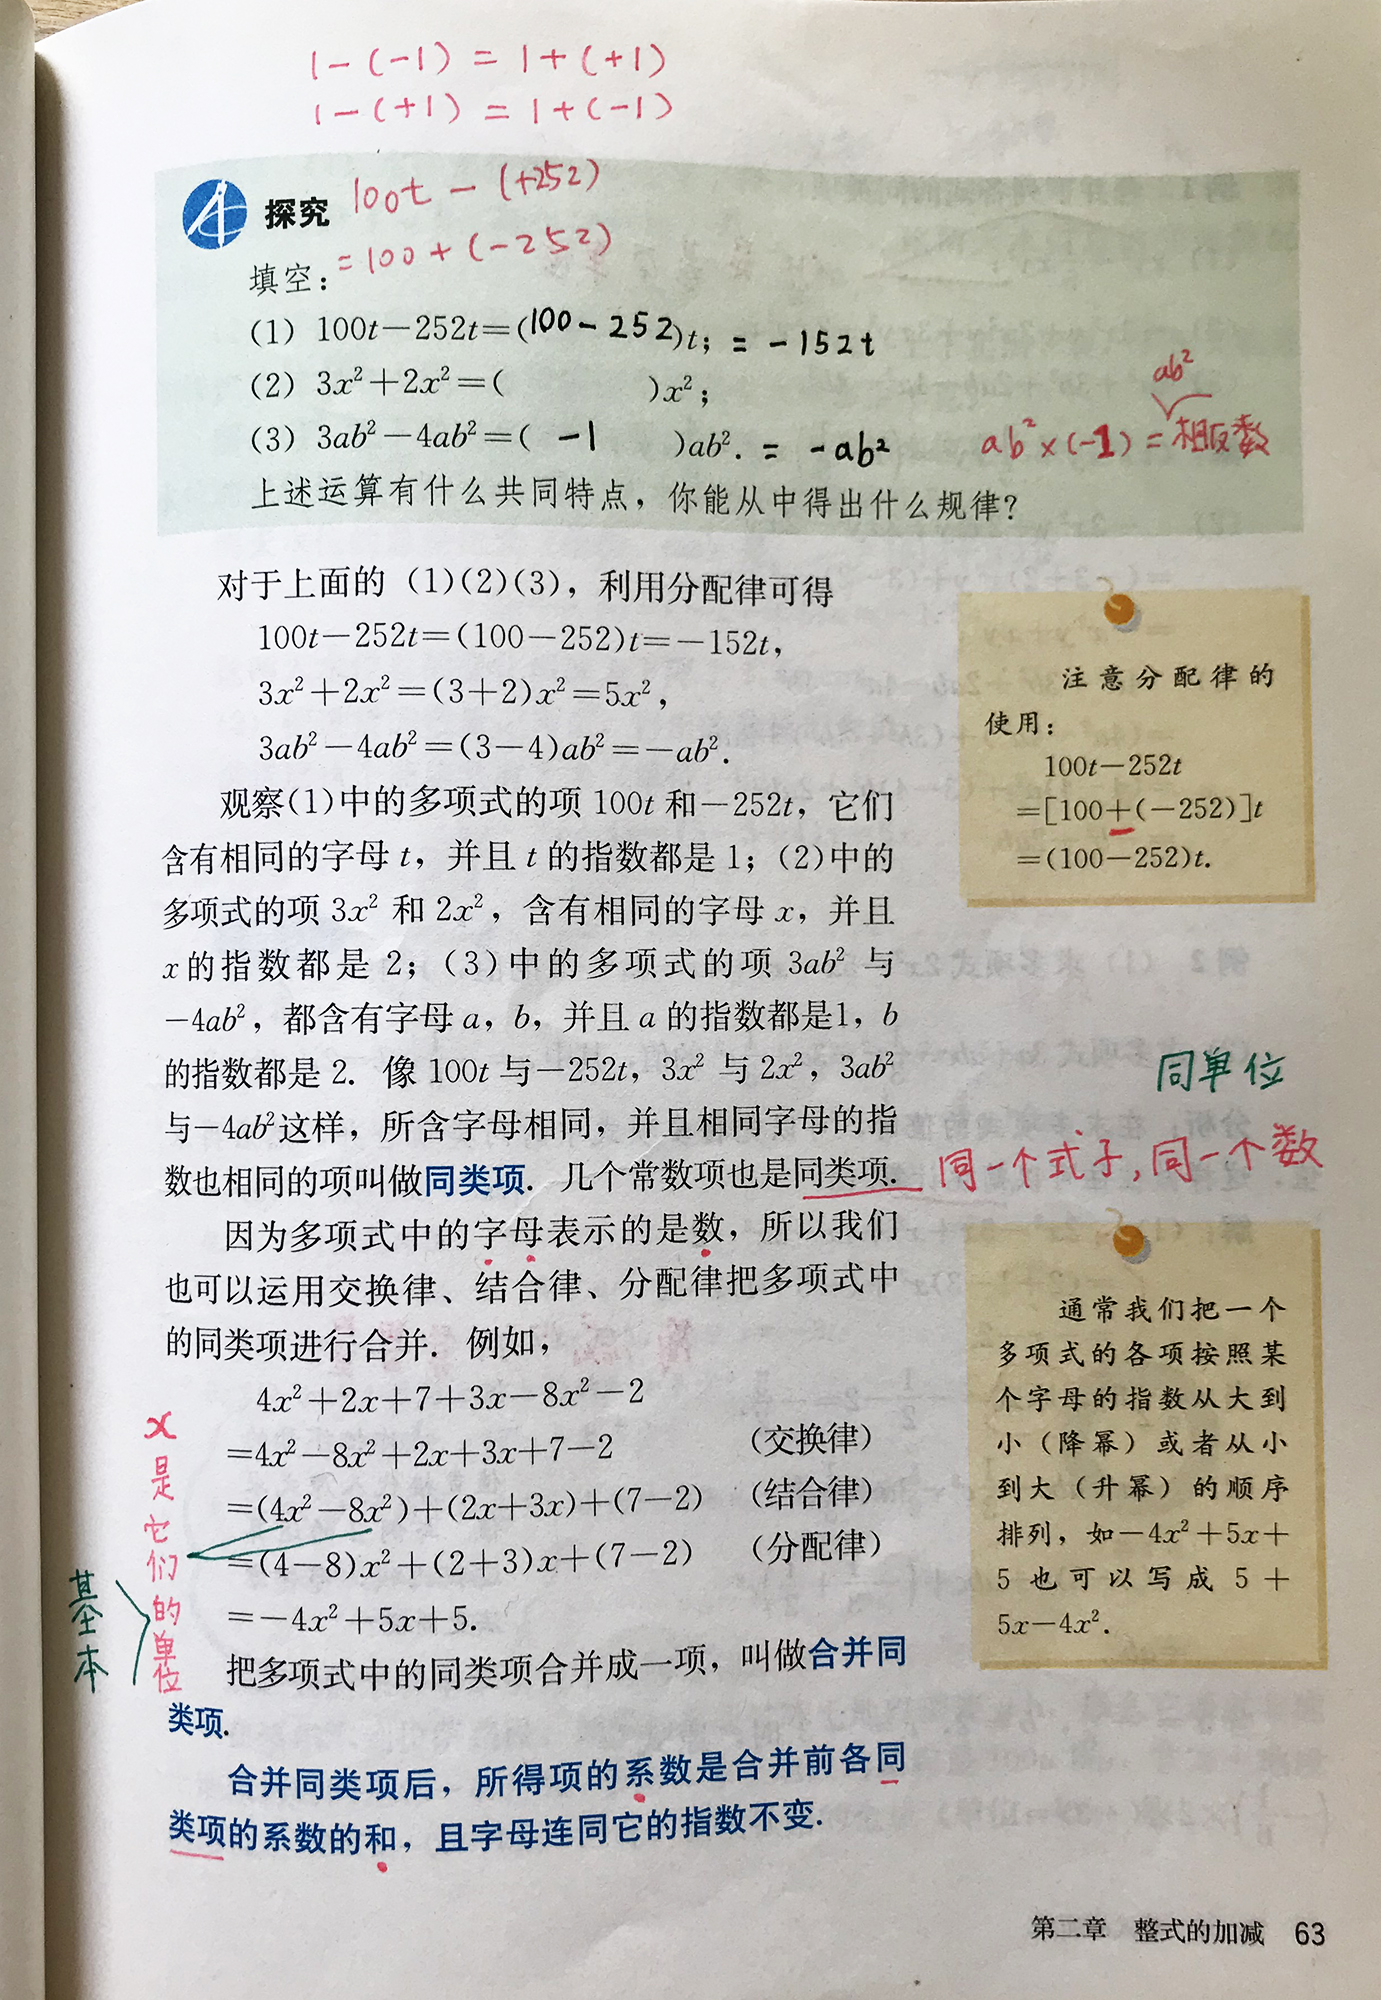 1-(-1) = 1+(+1)
1-(+1) = 1+(-1)
探究 100t - (+252)
=100+(-252)
填空:
(1) 100t-252t=(100-252)t; = -152t
(2) 3x²+2x²=( )x²;
ab²
(3) 3ab²-4ab²=( -1 )ab². = -ab² ab²×(-1)=相反数
上述运算有什么共同特点，你能从中得出什么规律?
对于上面的 (1)(2)(3)，利用分配律可得
100t-252t=(100-252)t=-152t,
3x²+2x²=(3+2)x²=5x²,
3ab²-4ab²=(3-4)ab²=-ab².
注意分配律的
使用:
100t-252t
=[100+(-252)]t
=(100-252)t.
观察(1)中的多项式的项 100t 和-252t，它们
含有相同的字母 t，并且 t 的指数都是 1；(2)中的
多项式的项 3x² 和 2x²，含有相同的字母 x，并且
x 的指数都是 2；(3)中的多项式的项 3ab² 与
-4ab²，都含有字母 a，b，并且 a 的指数都是1，b
的指数都是 2. 像 100t 与-252t，3x² 与 2x²，3ab²
与-4ab²这样，所含字母相同，并且相同字母的指
数也相同的项叫做同类项. 几个常数项也是同类项.
同单位
同一个式子,同一个数
因为多项式中的字母表示的是数，所以我们
也可以运用交换律、结合律、分配律把多项式中
的同类项进行合并. 例如，
4x²+2x+7+3x-8x²-2
=4x²-8x²+2x+3x+7-2 (交换律)
=(4x²-8x²)+(2x+3x)+(7-2) (结合律)
=(4-8)x²+(2+3)x+(7-2) (分配律)
=-4x²+5x+5.
x是它们的单位
基本
通常我们把一个
多项式的各项按照某
个字母的指数从大到
小（降幂）或者从小
到大（升幂）的顺序
排列，如-4x²+5x+
5 也可以写成 5+
5x-4x².
把多项式中的同类项合并成一项，叫做合并同
类项.
合并同类项后，所得项的系数是合并前各同
类项的系数的和，且字母连同它的指数不变.
第二章 整式的加减 63